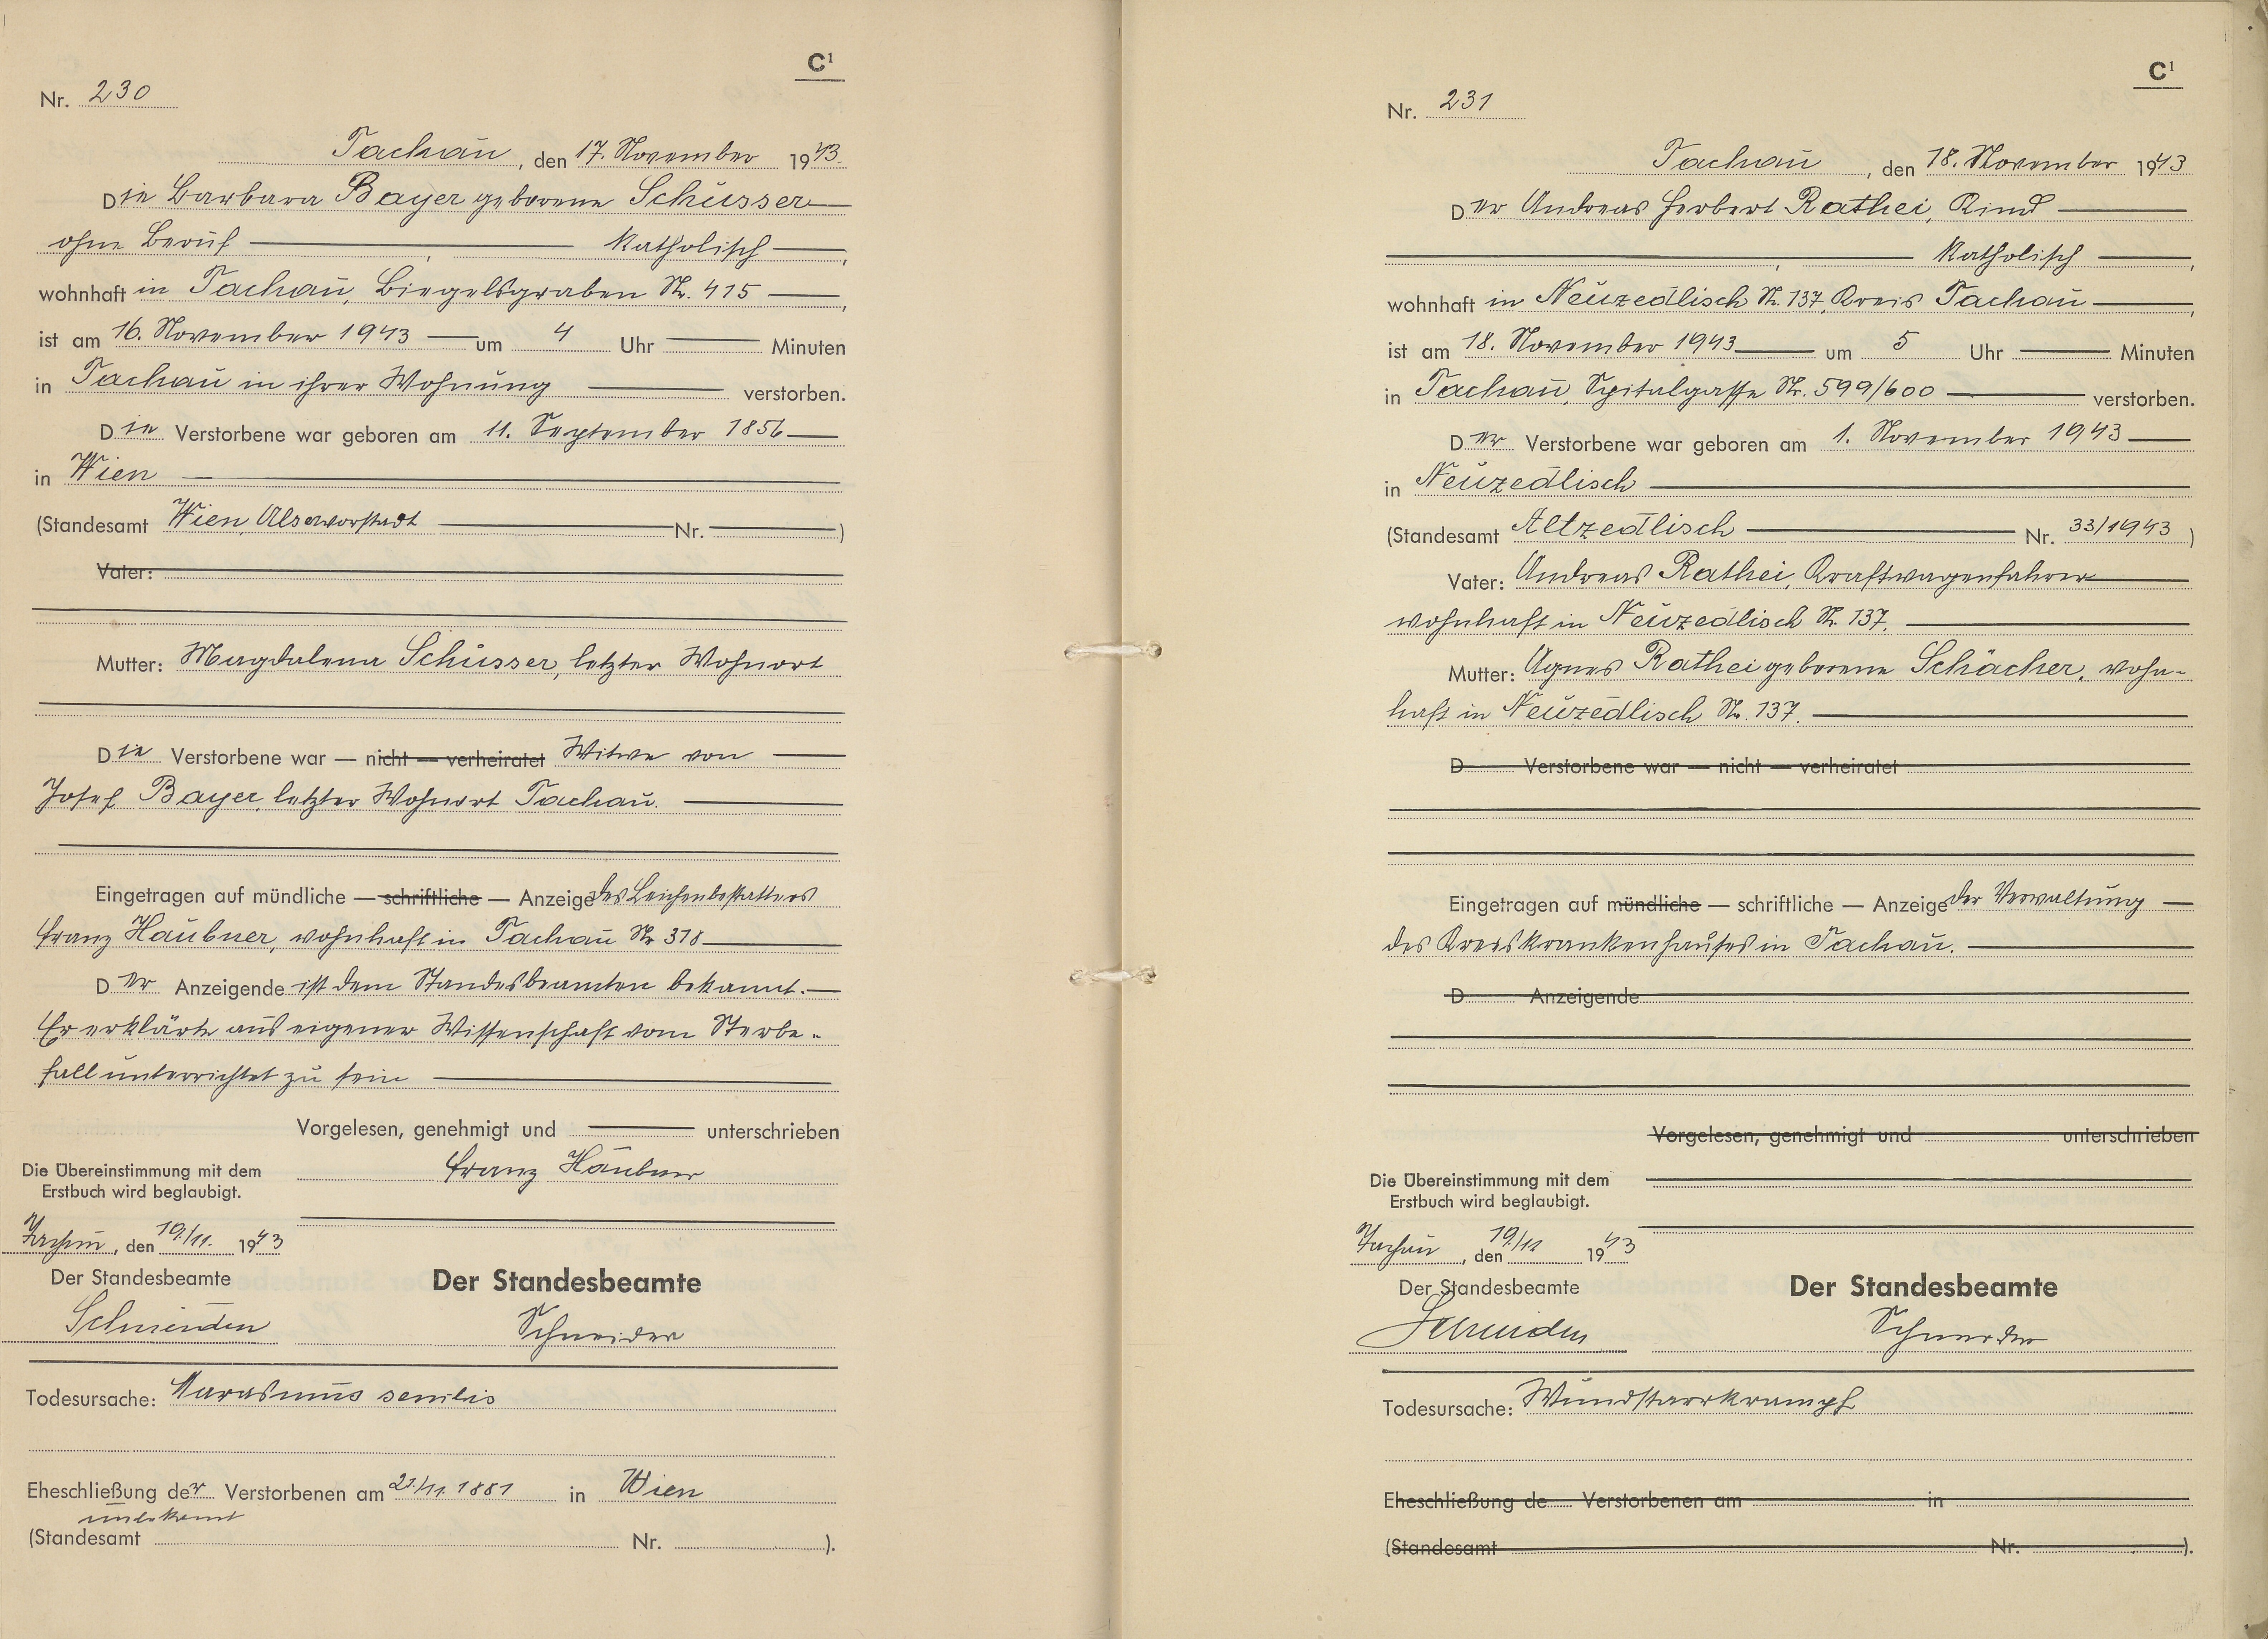 C¹
Nr. 230
Tachau, den 17. November 1943.
Die Barbara Bayer geborene Schüsser
ohne Beruf, katholisch,
wohnhaft in Tachau, Biegelsgraben Nr. 415,
ist am 16. November 1943 um 4 Uhr Minuten
in Tachau in ihrer Wohnung verstorben.
Die Verstorbene war geboren am 11. September 1856
in Wien
(Standesamt Wien, Alservorstadt Nr. )
Vater:
Mutter: Magdalena Schüsser, letzter Wohnort
Die Verstorbene war — nicht — verheiratet Witwe von
Josef Bayer, letzter Wohnort Tachau.
Eingetragen auf mündliche — schriftliche — Anzeige des Leichenbestatters
Franz Häubner, wohnhaft in Tachau Nr 318
Der Anzeigende ist dem Standesbeamten bekannt.
Er erklärte aus eigener Wissenschaft vom Sterbe-
fall unterrichtet zu sein
Vorgelesen, genehmigt und unterschrieben
Franz Häubner
Die Übereinstimmung mit dem
Erstbuch wird beglaubigt.
Tachau, den 19./11. 1943
Der Standesbeamte
Schneider
Der Standesbeamte
Schneider
Todesursache: Marasmus senilis
Eheschließung der Verstorbenen am 21./11. 1881 in Wien
unbekannt
(Standesamt Nr. ).
C¹
Nr. 231
Tachau, den 18. November 1943
Der Andreas Herbert Rathei, Kind
, katholisch,
wohnhaft in Neuzedlisch Nr. 137, Kreis Tachau,
ist am 18. November 1943 um 5 Uhr Minuten
in Tachau, Spitalgasse Nr. 599/600 verstorben.
Der Verstorbene war geboren am 1. November 1943
in Neuzedlisch
(Standesamt Altzedlisch Nr. 33/1943)
Vater: Andreas Rathei, Kraftwagenfahrer
wohnhaft in Neuzedlisch Nr. 137.
Mutter: Agnes Rathei geborene Schächer, wohn-
haft in Neuzedlisch Nr. 137.
D Verstorbene war — nicht — verheiratet
Eingetragen auf mündliche — schriftliche — Anzeige der Verwaltung
des Kreiskrankenhauses in Tachau.
D Anzeigende
Vorgelesen, genehmigt und unterschrieben
Die Übereinstimmung mit dem
Erstbuch wird beglaubigt.
Tachau, den 19./11 1943
Der Standesbeamte
Schneider
Der Standesbeamte
Schneider
Todesursache: Wundstarrkrampf
Eheschließung de Verstorbenen am in
(Standesamt Nr. ).